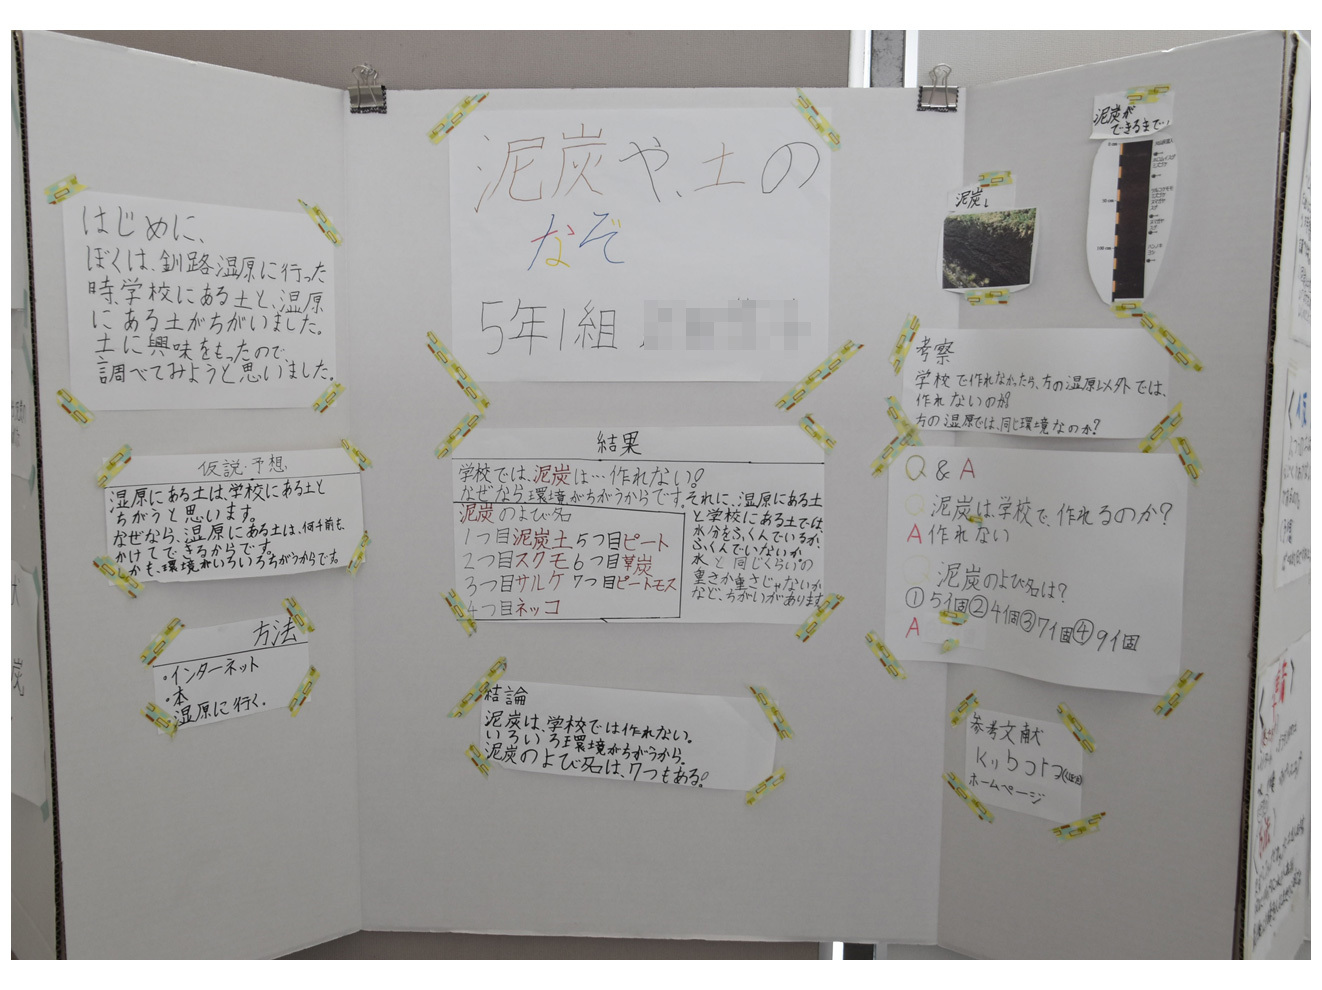 泥炭や、土の
なぞ
5年1組
はじめに、
ぼくは、釧路湿原に行った
時、学校にある土と、湿原
にある土がちがいました。
土に興味をもったので、
調べてみようと思いました。
仮説・予想
湿原にある土は、学校にある土と
ちがうと思います。
なぜなら、湿原にある土は、何千前も、
かけてできるからです。
しかも、環境がいろいろちがうからです。
方法
・インターネット
・本
・湿原に行く。
結果
学校では、泥炭は…作れない!
なぜなら、環境がちがうからです。それに、湿原にある土
と学校にある土では、
水分をふくんでいるか、
ふくんでいないか
水と同じくらいの
重さか重さじゃないか
など、ちがいがあります。
泥炭のよび名
1つ目泥炭土 5つ目ピート
2つ目スクモ 6つ目草炭
3つ目サルケ 7つ目ピートモス
4つ目ネッコ
結論
泥炭は、学校では作れない。
いろいろ環境がちがうから。
泥炭のよび名は、7つもある!
泥炭↓
泥炭が
できるまで↓
0 cm
50 cm
100 cm
考察
学校で作れなかったら、方の湿原以外では、
作れないのか?
方の湿原では、同じ環境なのか?
Q & A
Q 泥炭は、学校で、作れるのか?
A 作れない
Q 泥炭のよび名は?
①5個②4個③7個④9個
A
参考文献
ホームページ